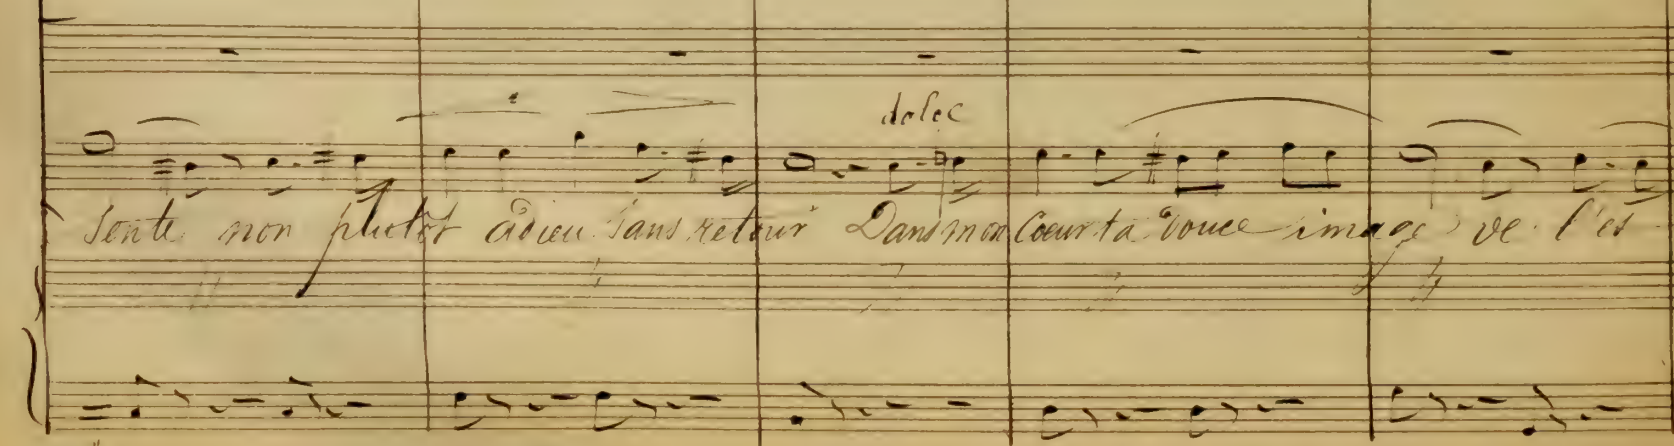 dolce
sente non plutôt adieu sans retour Dans mon Coeur ta douce image de l'es